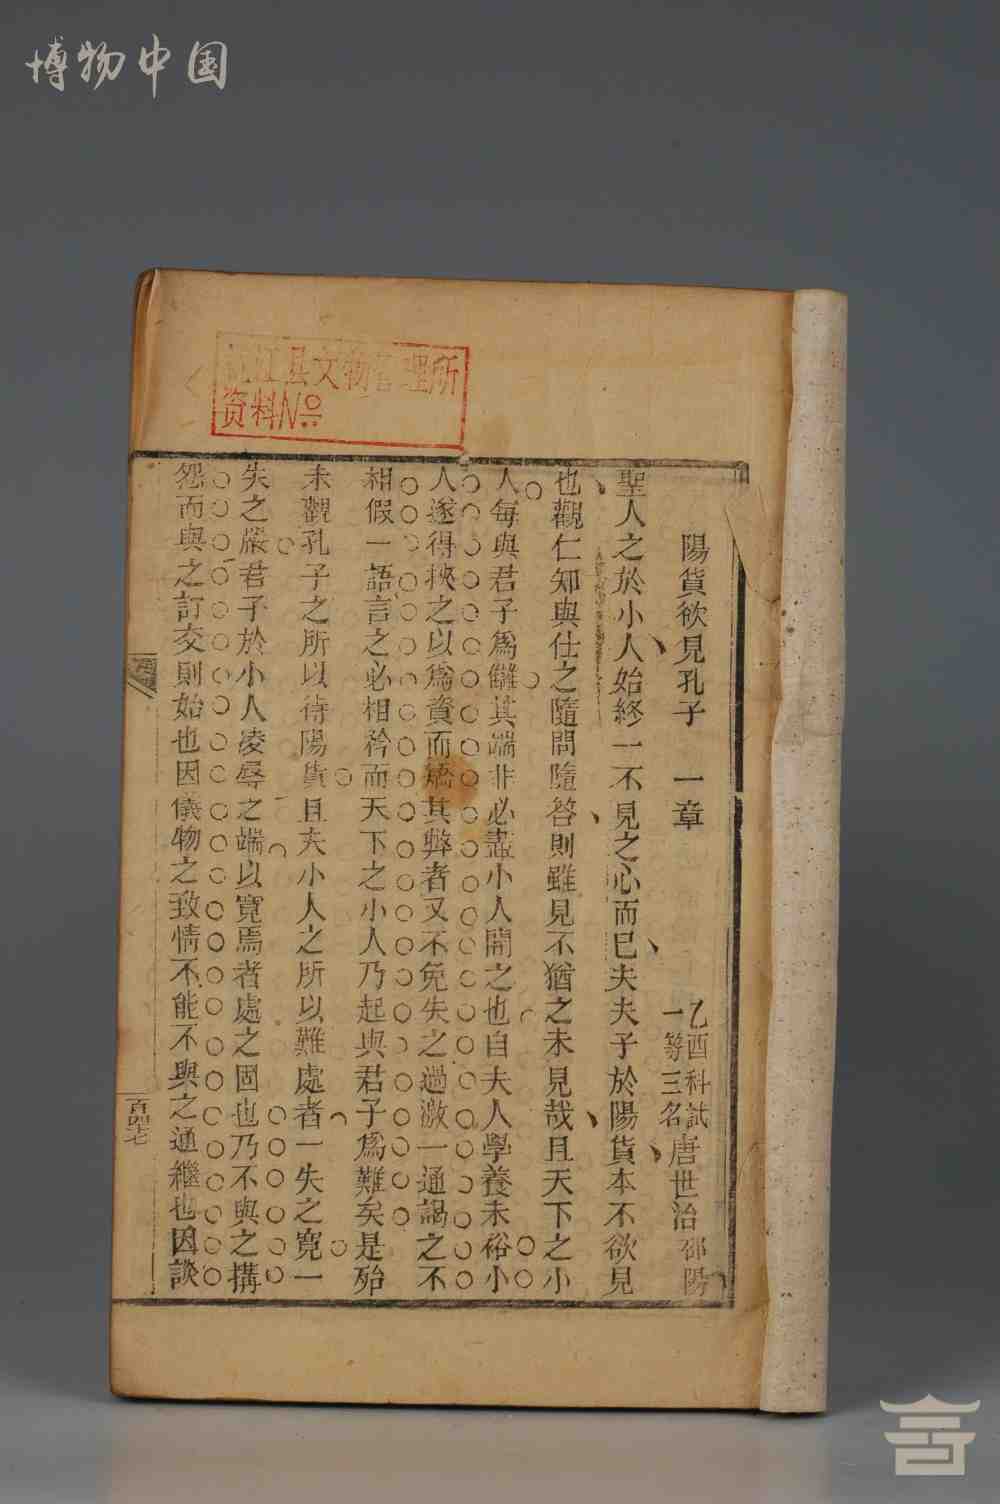 博物中国
江县文物管理所
资料№
陽貨欲見孔子 一章
乙酉科試
一等三名
唐世治 邵陽
聖人之於小人始終一不見之心而已夫夫子於陽貨本不欲見
也觀仁知與仕之隨問隨答則雖見不猶之未見哉且天下之小
人每與君子爲讎其端非必盡小人開之也自夫人學養未裕小
人遂得挾之以爲資而矯其弊者又不免失之過激一通謁之不
相假一語言之必相矜而天下之小人乃起與君子爲難矣是殆
未觀孔子之所以待陽貨且夫小人之所以難處者一失之寬一
失之嚴君子於小人凌辱之端以寬焉者處之固也乃不與之搆
怨而與之訂交則始也因儀物之致情不能不與之通繼也因談
百四十七